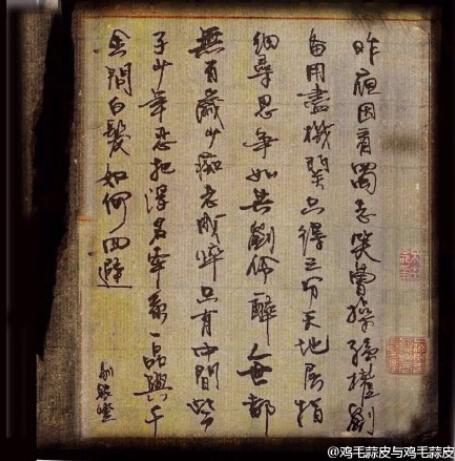 昨夜因看蜀志笑曹操孫權劉
备用盡機関只得三分天地屈指
細尋思争如共劉伶一醉人世都
無百歲少痴老成悴只有中間些
子少年忍把浮名牵系一品與千
金問白髮如何回避
剔銀燈
@鸡毛蒜皮与鸡毛蒜皮